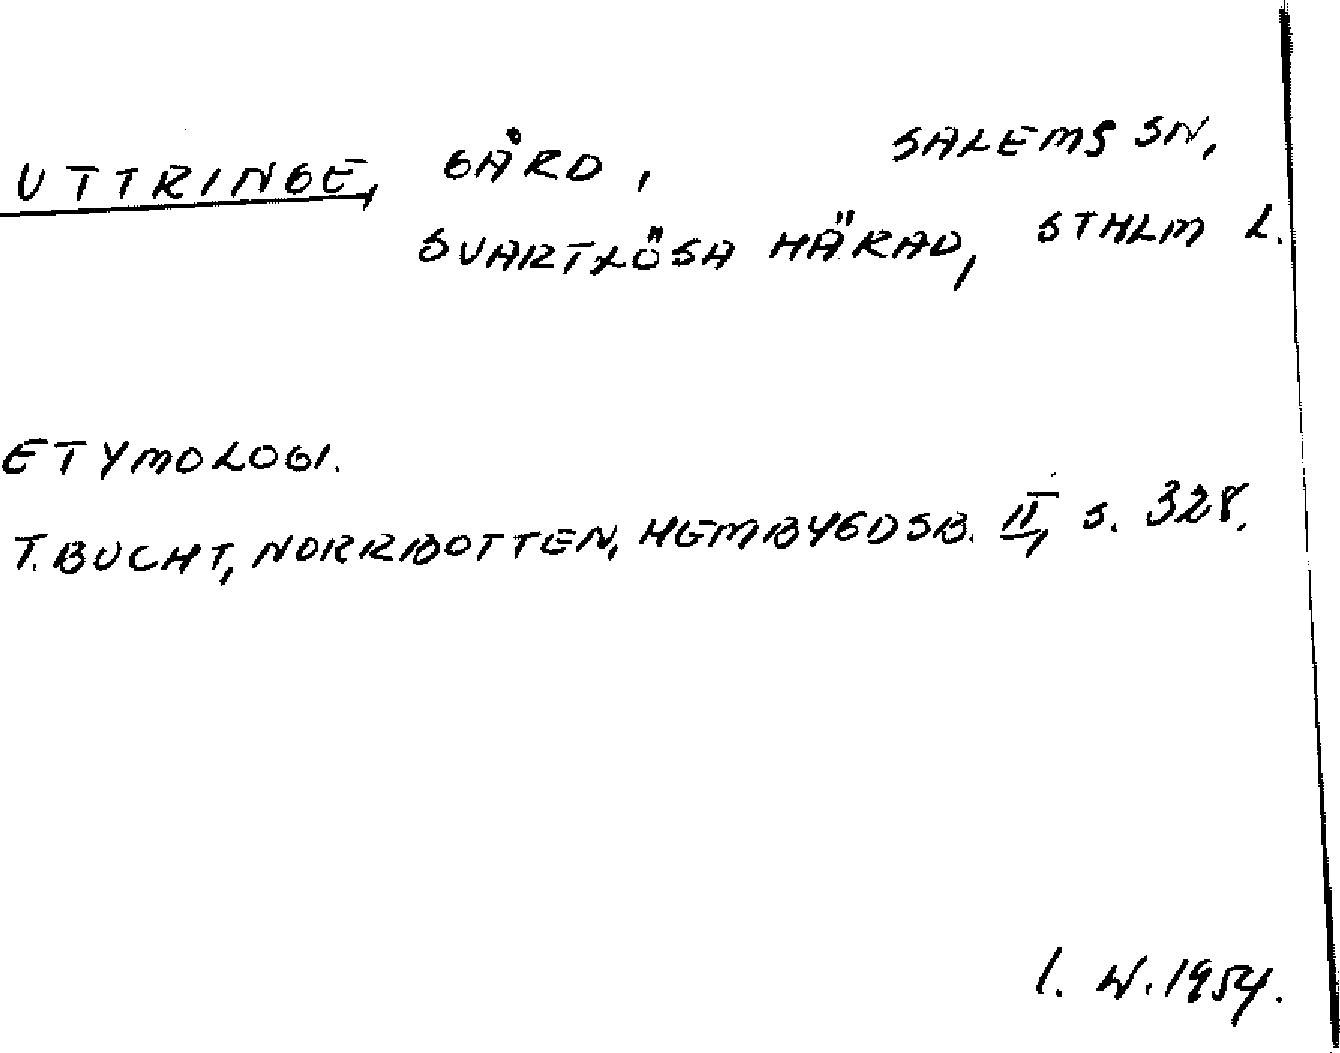 UTTRINGE, GÅRD, SALEMS SN,
SVARTLÖSA HÄRAD, STHLM L.
ETYMOLOGI.
T. BUCHT, NORRBOTTEN, HEMBYGDSB. II, S. 328.
I. W. 1954.